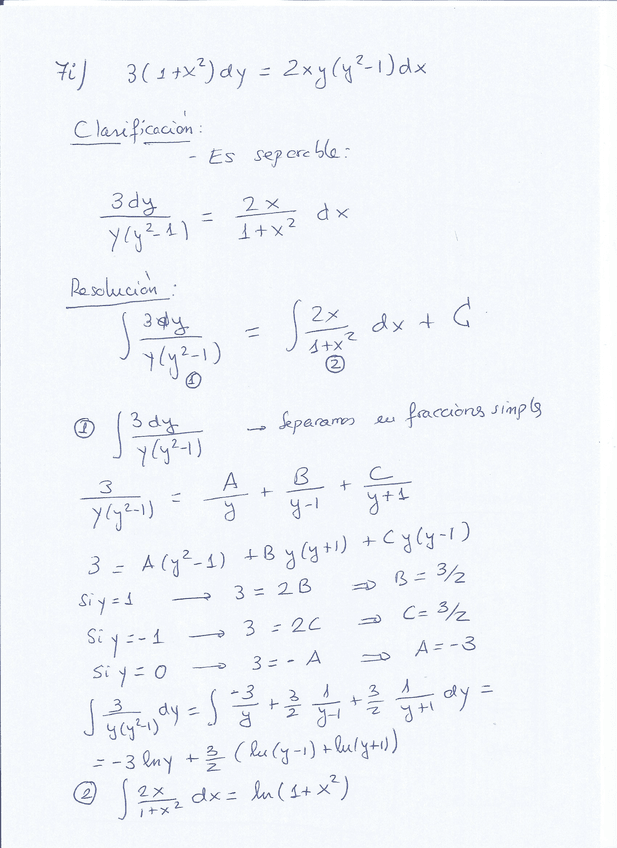 7i) 3(1+x²)dy = 2xy(y²-1)dx
Clasificación:
- Es separable:
3dy / y(y²-1) = 2x / 1+x² dx
Resolución:
∫ 3dy / y(y²-1) = ∫ 2x / 1+x² dx + C
① ②
① ∫ 3dy / y(y²-1) → Separamos en fracciones simples
3 / y(y²-1) = A/y + B/y-1 + C/y+1
3 = A(y²-1) + By(y+1) + Cy(y-1)
Si y=1 → 3 = 2B ⇒ B = 3/2
Si y=-1 → 3 = 2C ⇒ C = 3/2
Si y=0 → 3=-A ⇒ A=-3
∫ 3 / y(y²-1) dy = ∫ -3/y + 3/2 1/y-1 + 3/2 1/y+1 dy =
= -3 ln y + 3/2 (ln(y-1)+ln(y+1))
② ∫ 2x / 1+x² dx = ln(1+x²)